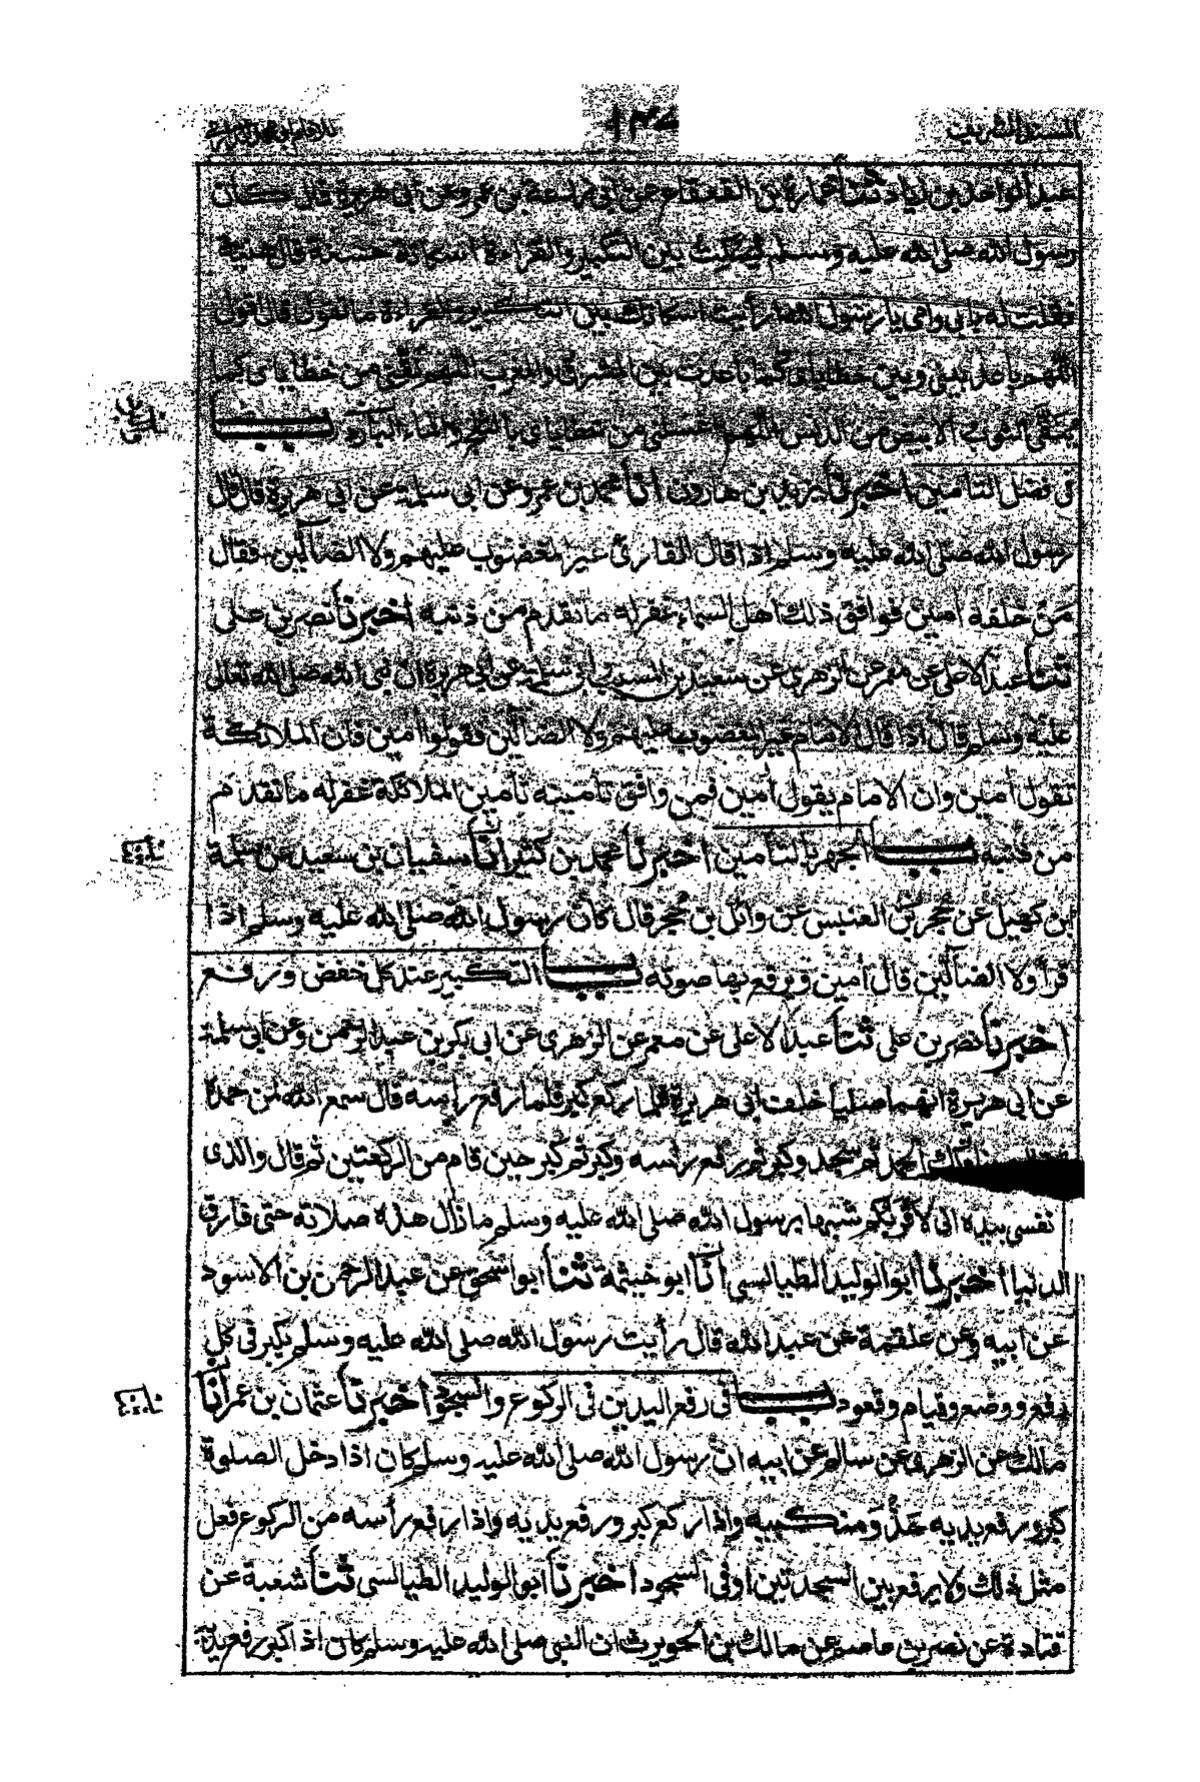 المسند الشريف
١٤٧
عبد الواحد بن زياد ثنا عمارة بن القعقاع عن ابى زرعة بن عمرو عن ابى هريرة قال كان
رسول الله صلى الله عليه وسلم يسكت بين التكبير والقراءة اسكاتة حسنة قال هنية
فقلت له بابى وامى يا رسول الله ارأيت اسكاتك بين التكبير والقراءة ما تقول قال اقول
اللهم باعد بينى وبين خطاياى كما باعدت بين المشرق والمغرب اللهم نقنى من خطاياى كما
ينقى الثوب الابيض من الدنس اللهم اغسلنى من خطاياى بالثلج والماء البارد باب
فى فضل التأمين اخبرنا يزيد بن هارون انا محمد بن عمرو عن ابى سلمة عن ابى هريرة قال قال
رسول الله صلى الله عليه وسلم اذا قال القارئ غير المغضوب عليهم ولا الضالين فقال
من خلفه امين فوافق ذلك اهل السماء غفر له ما تقدم من ذنبه اخبرنا نصر بن على
ثنا عبد الاعلى عن معمر عن الزهرى عن سعيد بن المسيب وابى سلمة عن ابى هريرة ان نبى الله صلى الله تعالى
عليه وسلم قال اذا قال الامام غير المغضوب عليهم ولا الضالين فقولوا امين فان الملائكة
تقول امين وان الامام يقول امين فمن وافق تأمينه تأمين الملائكة غفر له ما تقدم
من ذنبه باب الجهر بالتأمين اخبرنا محمد بن كثير انا سفيان بن سعيد عن سلمة
بن كهيل عن حجر بن العنبس عن وائل بن حجر قال كان رسول الله صلى الله عليه وسلم اذا
قرأ ولا الضالين قال امين ويرفع بها صوته باب التكبير عند كل خفض ورفع
اخبرنا نصر بن على ثنا عبد الاعلى عن معمر عن الزهرى عن ابى بكر بن عبد الرحمن وعن ابى سلمة
عن ابى هريرة انهما صليا خلف ابى هريرة فلما ركع كبر فلما رفع رأسه قال سمع الله لمن حمده
ولك الحمد ثم سجد وكبر ثم رفع رأسه وكبر ثم كبر حين قام من الركعتين ثم قال والذى
نفسى بيده انى لاقربكم شبها برسول الله صلى الله عليه وسلم ما زال هذه صلاته حتى فارق
الدنيا اخبرنا ابو الوليد الطيالسى انا ابو خيثمة ثنا ابو اسحق عن عبد الرحمن بن الاسود
عن ابيه وعن علقمة عن عبد الله قال رأيت رسول الله صلى الله عليه وسلم يكبر فى كل
رفع ووضع وقيام وقعود باب فى رفع اليدين فى الركوع والسجود اخبرنا عثمان بن عمر انا
مالك عن الزهرى عن سالم عن ابيه ان رسول الله صلى الله عليه وسلم كان اذا دخل الصلوة
كبر ورفع يديه حذو منكبيه واذا ركع كبر ورفع يديه واذا رفع رأسه من الركوع فعل
مثل ذلك ولا يرفع بين السجدتين او فى السجود اخبرنا ابو الوليد الطيالسى ثنا شعبة عن
قتادة عن نصر بن عاصم عن مالك بن الحويرث ان النبى صلى الله عليه وسلم كان اذا كبر رفع يديه